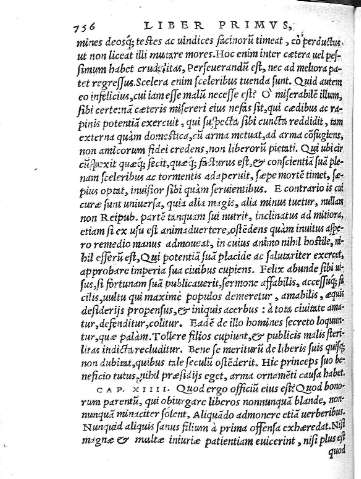 756 LIBER PRIMVS,
mines deosq́; testes ac uindices facinorũ timeat, eò perductus
ut non liceat illi mutare mores. Hoc enim inter cætera uel pes-
simum habet crudelitas, Perseuerandũ est, nec ad meliora pa-
tet regressus. Scelera enim sceleribus tuenda sunt. Quid autem
eo infelicius, cui iam esse malũ necesse est? O miserabilẽ illum,
sibi certe: nã cæteris misereri eius nefas sit, qui cædibus ac ra-
pinis potentiã exercuit, qui suspecta sibi cuncta reddidit, tam
externa quàm domestica, cũ arma metuat, ad arma cõfugiens,
non amicorum fidei credens, non liberorũ pietati. Qui ubi cir
cũspexit quæq́; fecit, quæq́; facturus est, & conscientiã suã ple-
nam sceleribus ac tormentis adaperuit, sæpe mortẽ timet, sæ-
pius optat, inuisior sibi quàm seruientibus. E contrario is cui
curæ sunt uniuersa, quia alia magis, alia minus tuetur, nullam
non Reipub. partẽ tanquam sui nutrit, inclinatus ad mitiora,
etiam si ex usu est animaduertere, ostẽdens quàm inuitus aspe-
ro remedio manus admoueat, in cuius animo nihil hostile, ni-
hil efferũ est, Qui potentiã suã placide ac salutariter exercet,
approbare imperia sua ciuibus cupiens. Felix abunde sibi ui-
sus, si fortunam suã publicauerit, sermone affabilis, accessuq́; fa
cilis, uultu qui maxime populos demeretur, amabilis, æquis
desiderijs propensus, & iniquis acerbus: à tota ciuitate ama-
tur, defenditur, colitur. Eadẽ de illo homines secreto loquun-
tur, quæ palàm. Tollere filios cupiunt, & publicis malis steri-
litas indicta recluditur. Bene se meriturũ de liberis suis quisq́;
non dubitat, quibus tale seculũ ostẽderit. Hic princeps suo be-
neficio tutus, nihil præsidijs eget, arma ornamẽti causa habet.
CAP. XIIII. Quod ergo officiũ eius est? Quod bono-
rum parentũ, qui obiurgare liberos nonnunquã blande, non-
nunquã minaciter solent, Aliquãdo admonere etiã uerberibus.
Nunquid aliquis sanus filium à prima offensa exhæredat? Nisi
magnæ & multæ iniuriæ patientiam euicerint, nisi plus est
quod